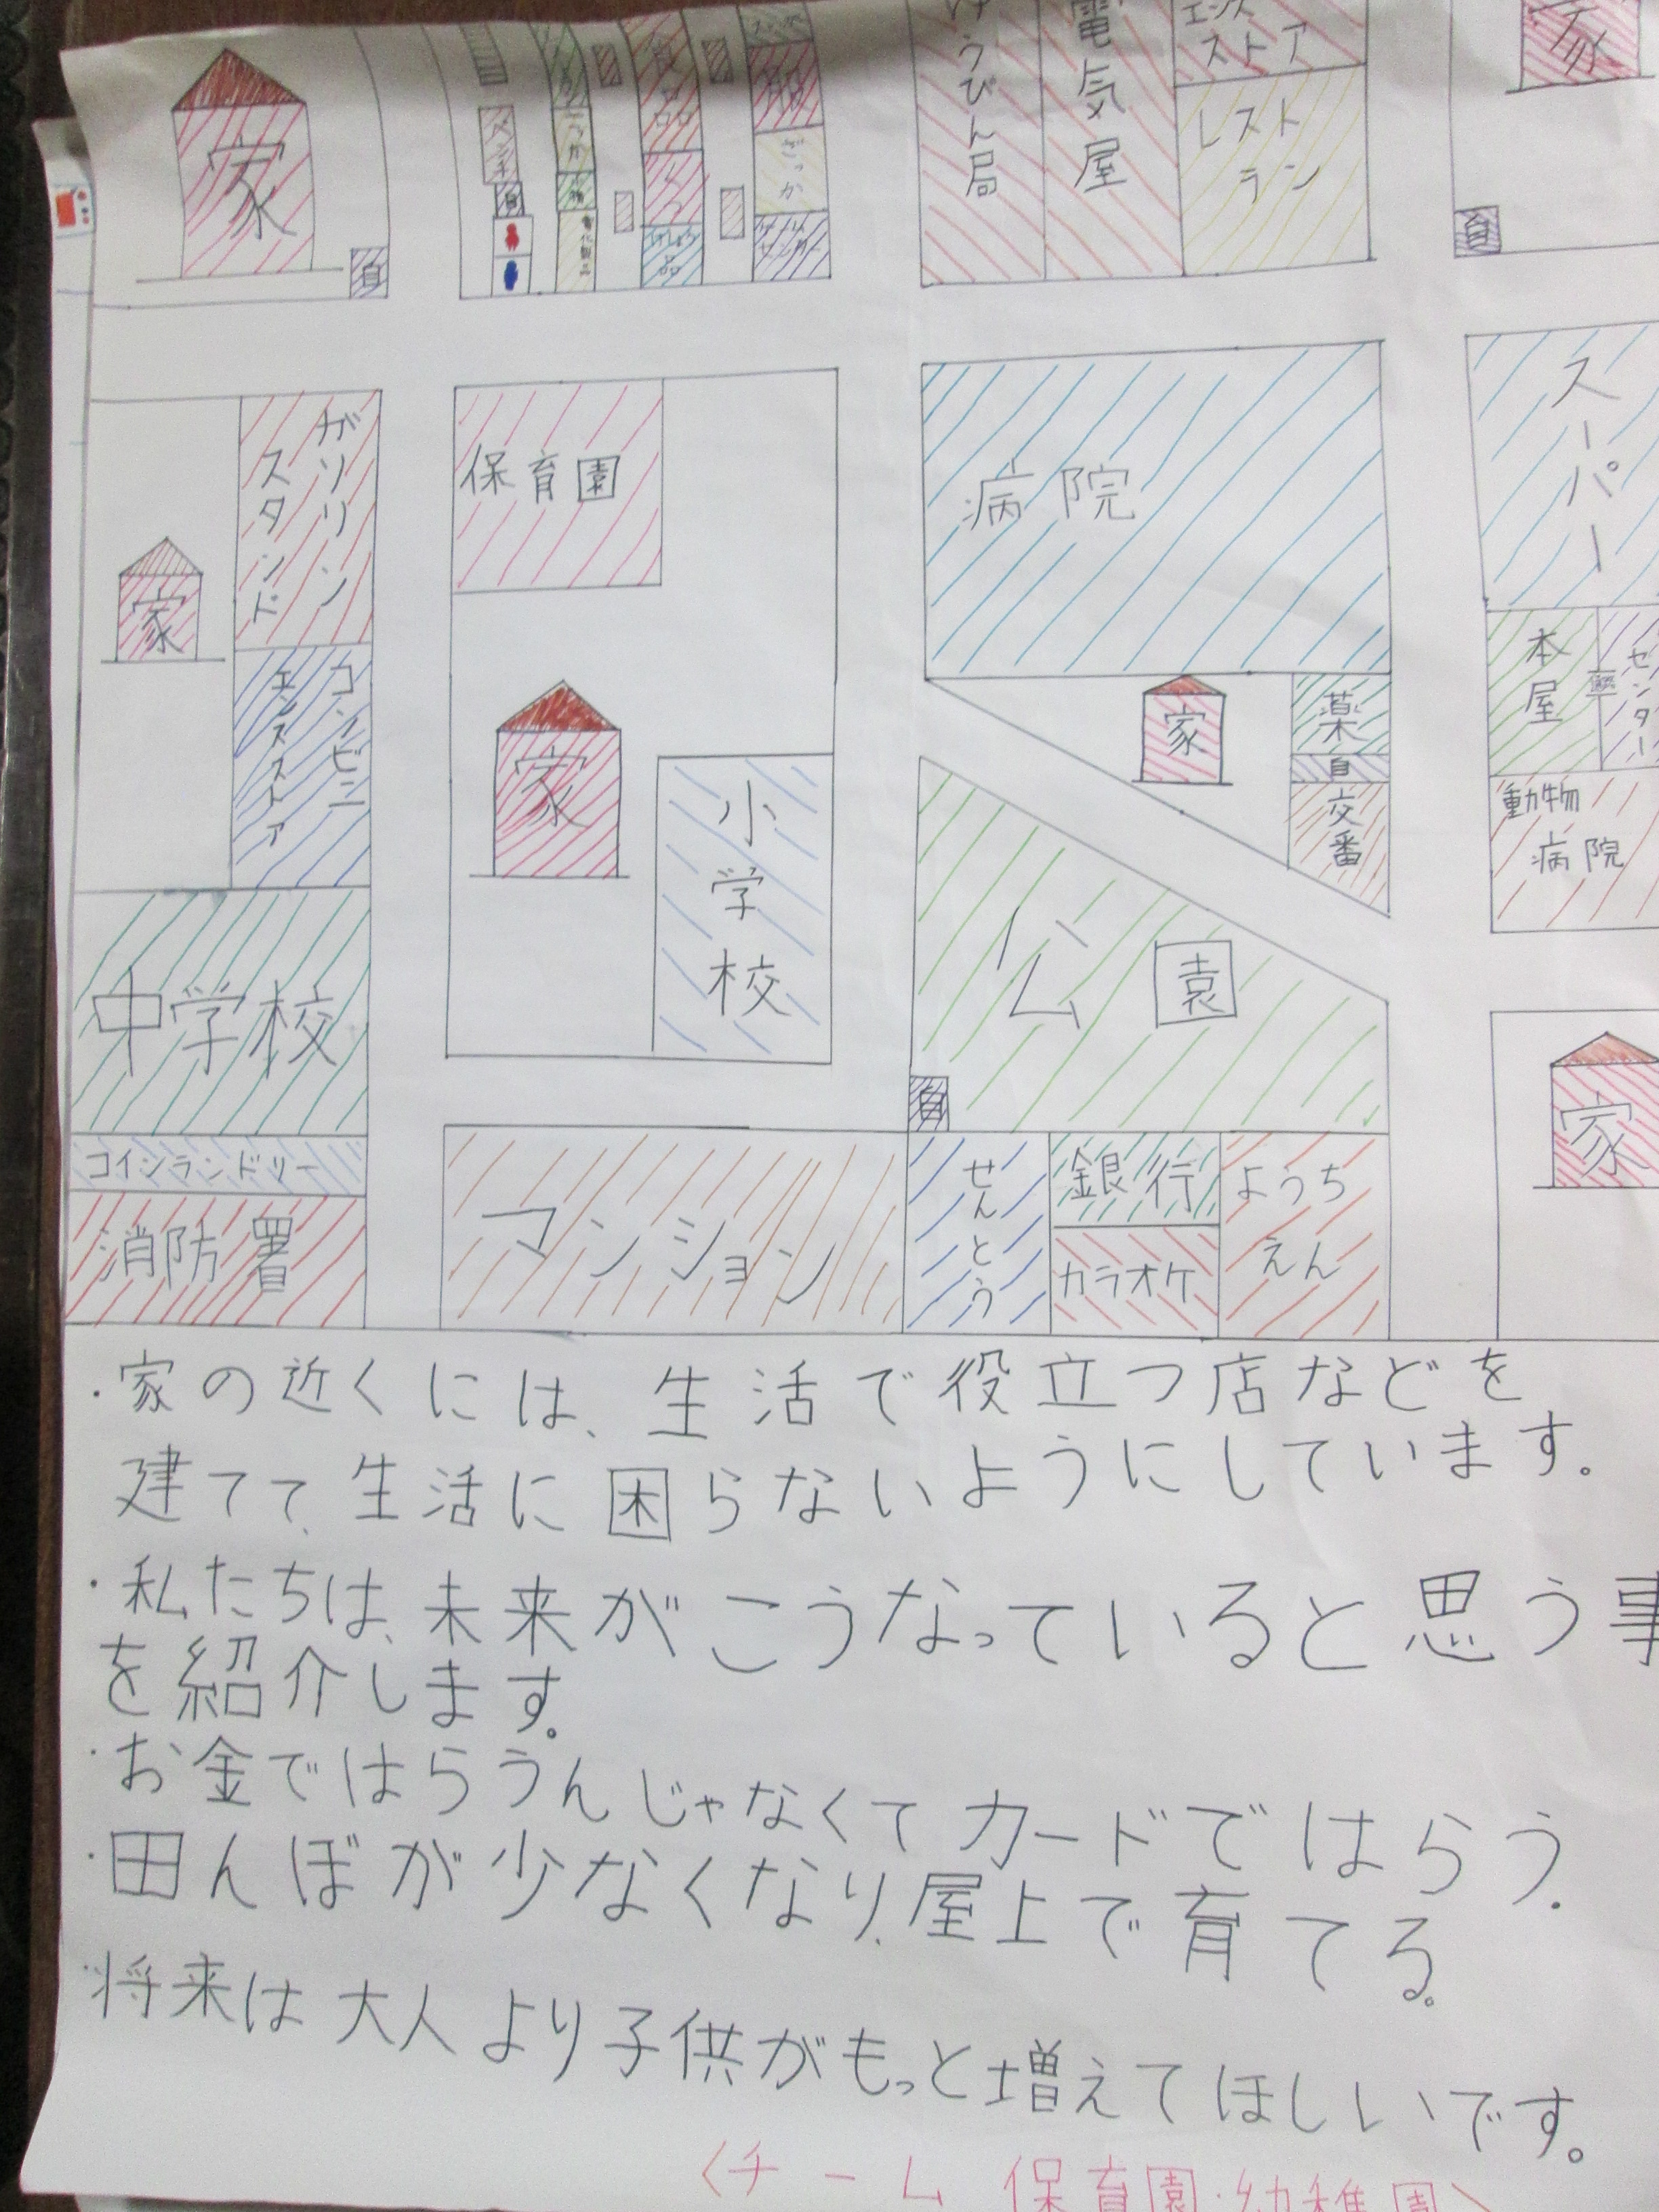 家
自
ベンチ
自
ざっか
ゆうびん局
電気屋
ストア
レスト
ラン
家
自
ガソリン
スタンド
家
コンビニ
エンスストア
中学校
コインランドリー
消防署
保育園
家
小学校
マンション
病院
家
薬
自
交番
公園
自
せんとう
銀行
カラオケ
ようち
えん
スーパー
本屋
センター
動物
病院
家
・家の近くには、生活で役立つ店などを
建てて、生活に困らないようにしています。
・私たちは、未来がこうなっていると思う事
を紹介します。
・お金ではらうんじゃなくてカードではらう。
・田んぼが少なくなり、屋上で育てる。
・将来は大人より子供がもっと増えてほしいです。
〈チーム 保育園・幼稚園〉